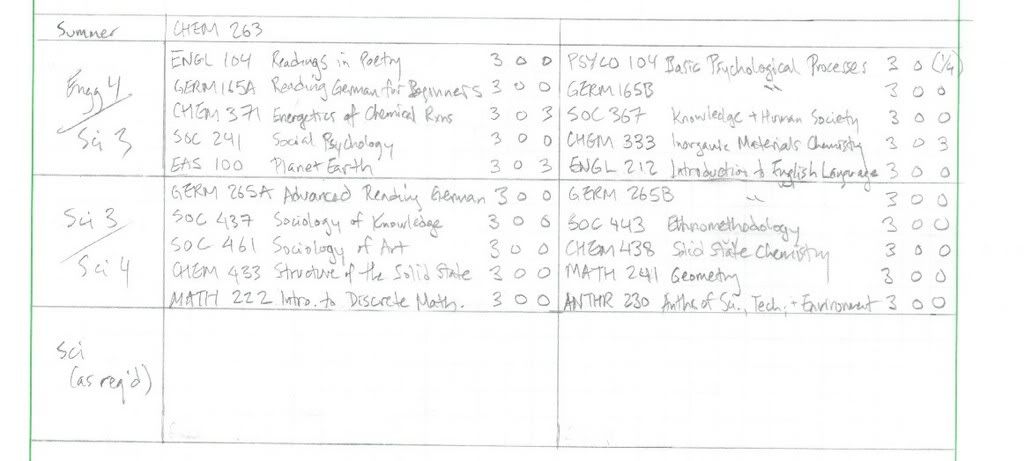 Summer CHEM 263
ENGL 104 Readings in Poetry 3 0 0 PSYCO 104 Basic Psychological Processes 3 0 (1/4)
Engg 4 GERM 165A Reading German for Beginners 3 0 0 GERM 165B " 3 0 0
CHEM 371 Energetics of Chemical Rxns 3 0 3 SOC 367 Knowledge + Human Society 3 0 0
Sci 3 SOC 241 Social Psychology 3 0 0 CHEM 333 Inorganic Materials Chemistry 3 0 3
EAS 100 Planet Earth 3 0 3 ENGL 212 Introduction to English Language 3 0 0
GERM 265A Advanced Reading German 3 0 0 GERM 265B " 3 0 0
Sci 3 SOC 437 Sociology of Knowledge 3 0 0 SOC 443 Ethnomethodology 3 0 0
SOC 461 Sociology of Art 3 0 0 CHEM 438 Solid State Chemistry 3 0 0
Sci 4 CHEM 433 Structure of the Solid State 3 0 0 MATH 241 Geometry 3 0 0
MATH 222 Intro. to Discrete Math. 3 0 0 ANTHR 230 Anthr. of Sci., Tech., + Environment 3 0 0
Sci
(as req'd)